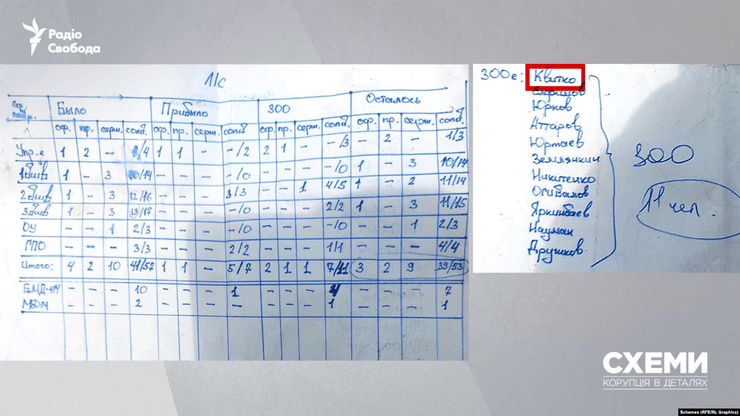 Радіо
Свобода
Л/с
Было Прибыло 300 Осталось
оф. пр. серж. солд. оф. пр. серж. солд оф. пр. серж. солд. оф. пр. серж. солд.
Упр.е 1 2 - 1/4 1 1 - -/2 2 1 - -/3 - 2 - 1/3
1 - 3 10/14 - - - -/0 - - - -/0 1 - 3 10/14
1 - 3 12/16 - - - 3/3 - - 1 4/5 1 - 2 11/14
1 - 3 13/17 - - - -/0 - - - 2/2 1 - 3 11/15
ОУ - - 1 2/3 - - - -/0 - - - -/0 - - 1 2/3
ГПО - - - 3/3 - - - 2/2 - - - 1/1 - - - 4/4
Итого: 4 2 10 41/57 1 1 - 5/7 2 1 1 7/11 3 2 9 39/53
БМД-4М - - - 10 - - - 1 - - - 4 - - - 7
- - - 2 - - - - - - - 1 - - - 1
300е: Квитко
Юрков
Аттаров
Юртаев
Землянкин
Никитенко
Яркинбаев
Науман
Друшков
300
11 чел.
СХЕМИ
КОРУПЦІЯ В ДЕТАЛЯХ
Schemes (RFE/RL Graphics)